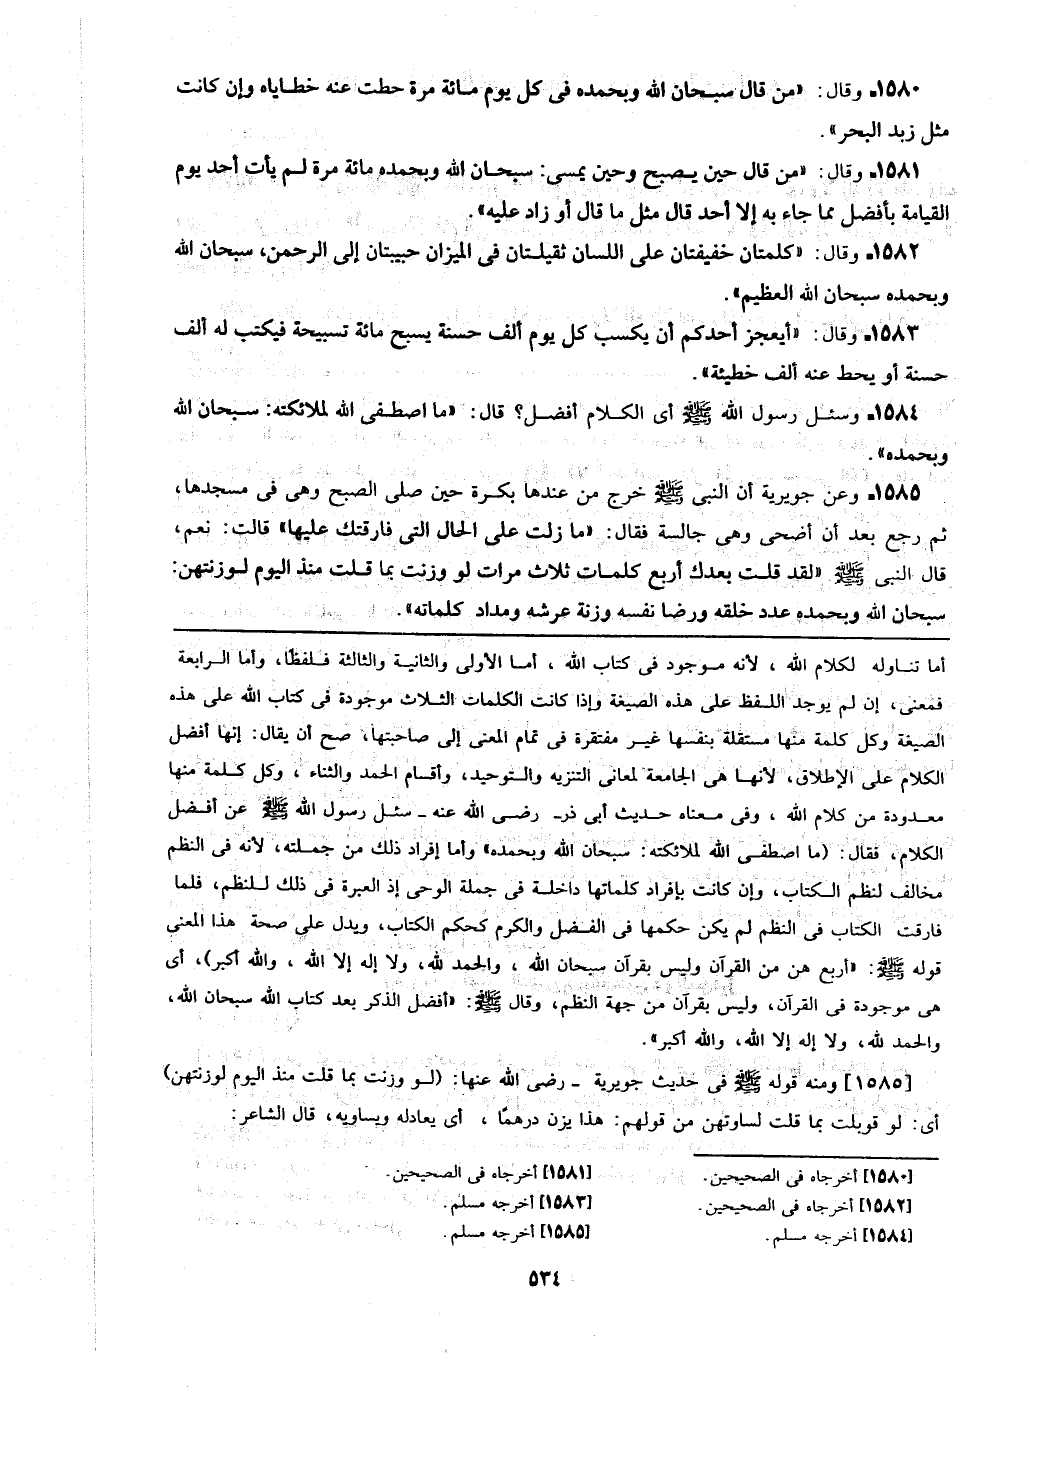 ١٥٨٠ـ وقال: «من قال سبحان الله وبحمده فى كل يوم مائة مرة حطت عنه خطاياه وإن كانت
مثل زبد البحر».
١٥٨١ـ وقال: «من قال حين يصبح وحين يمسى: سبحان الله وبحمده مائة مرة لم يأت أحد يوم
القيامة بأفضل مما جاء به إلا أحد قال مثل ما قال أو زاد عليه».
١٥٨٢ـ وقال: «كلمتان خفيفتان على اللسان ثقيلتان فى الميزان حبيبتان إلى الرحمن، سبحان الله
وبحمده سبحان الله العظيم».
١٥٨٣ـ وقال: «أيعجز أحدكم أن يكسب كل يوم ألف حسنة يسبح مائة تسبيحة فيكتب له ألف
حسنة أو يحط عنه ألف خطيئة».
١٥٨٤ـ وسئل رسول الله ﷺ أى الكلام أفضل؟ قال: «ما اصطفى الله لملائكته: سبحان الله
وبحمده».
١٥٨٥ـ وعن جويرية أن النبى ﷺ خرج من عندها بكرة حين صلى الصبح وهى فى مسجدها،
ثم رجع بعد أن أضحى وهى جالسة فقال: «ما زلت على الحال التى فارقتك عليها» قالت: نعم،
قال النبى ﷺ «لقد قلت بعدك أربع كلمات ثلاث مرات لو وزنت بما قلت منذ اليوم لوزنتهن:
سبحان الله وبحمده عدد خلقه ورضا نفسه وزنة عرشه ومداد كلماته».
أما تناوله لكلام الله ، لأنه موجود فى كتاب الله ، أما الأولى والثانية والثالثة فلفظًا، وأما الرابعة
فمعنى، إن لم يوجد اللفظ على هذه الصيغة وإذا كانت الكلمات الثلاث موجودة فى كتاب الله على هذه
الصيغة وكل كلمة منها مستقلة بنفسها غير مفتقرة فى تمام المعنى إلى صاحبتها، صح أن يقال: إنها أفضل
الكلام على الإطلاق، لأنها هى الجامعة لمعانى التنزيه والتوحيد، وأقسام الحمد والثناء ، وكل كلمة منها
معدودة من كلام الله ، وفى معناه حديث أبى ذرـ رضى الله عنه ـ سئل رسول الله ﷺ عن أفضل
الكلام، فقال: (ما اصطفى الله لملائكته: سبحان الله وبحمده» وأما إفراد ذلك من جملته، لأنه فى النظم
مخالف لنظم الكتاب، وإن كانت بإفراد كلماتها داخلة فى جملة الوحى إذ العبرة فى ذلك للنظم، فلما
فارقت الكتاب فى النظم لم يكن حكمها فى الفضل والكرم كحكم الكتاب، ويدل على صحة هذا المعنى
قوله ﷺ: «أربع هن من القرآن وليس بقرآن سبحان الله ، والحمد لله، ولا إله إلا الله ، والله أكبر)، أى
هى موجودة فى القرآن، وليس بقرآن من جهة النظم، وقال ﷺ: «أفضل الذكر بعد كتاب الله سبحان الله،
والحمد لله، ولا إله إلا الله، والله أكبر».
[١٥٨٥] ومنه قوله ﷺ فى حديث جويرية ـ رضى الله عنها: (لو وزنت بما قلت منذ اليوم لوزنتهن)
أى: لو قوبلت بما قلت لساوتهن من قولهم: هذا يزن درهمًا ، أى يعادله ويساويه، قال الشاعر:
[١٥٨٠] أخرجاه فى الصحيحين.
[١٥٨١] أخرجاه فى الصحيحين.
[١٥٨٢] أخرجاه فى الصحيحين.
[١٥٨٣] أخرجه مسلم.
[١٥٨٤] أخرجه مسلم.
[١٥٨٥] أخرجه مسلم.
٥٣٤